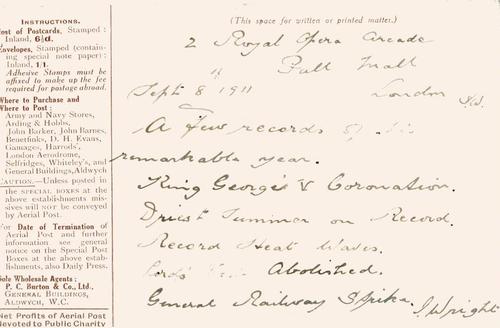 INSTRUCTIONS.
Cost of Postcards, Stamped :
Inland, 6½d.
Envelopes, Stamped (contain-
ing special note paper) :
Inland, 1/1.
Adhesive Stamps must be
affixed to make up the fee
required for postage abroad.
Where to Purchase and
Where to Post :
Army and Navy Stores,
Arding & Hobbs,
John Barker, John Barnes,
Benetfinks, D. H. Evans,
Gamages, Harrods',
London Aerodrome,
Selfridges, Whiteley's, and
General Buildings, Aldwych
CAUTION.—Unless posted in
the SPECIAL BOXES at the
above establishments mis-
sives will NOT be conveyed
by Aerial Post.
For Date of Termination of
Aerial Post and further
information see general
notice on the Special Post
Boxes at the above estab-
lishments, also Daily Press.
Sole Wholesale Agents :
P. C. Burton & Co., Ltd.,
GENERAL BUILDINGS,
ALDWYCH, W.C.
Net Profits of Aerial Post
Devoted to Public Charity
(This space for written or printed matter.)
2 Royal Opera Arcade
Pall Mall
Sept 8 1911 London S.W.
A few records of
remarkable year.
King George's V Coronation.
Driest Summer on Record.
Record Heat Waves.
Lords Abolished.
General Railway Strike. J Wright